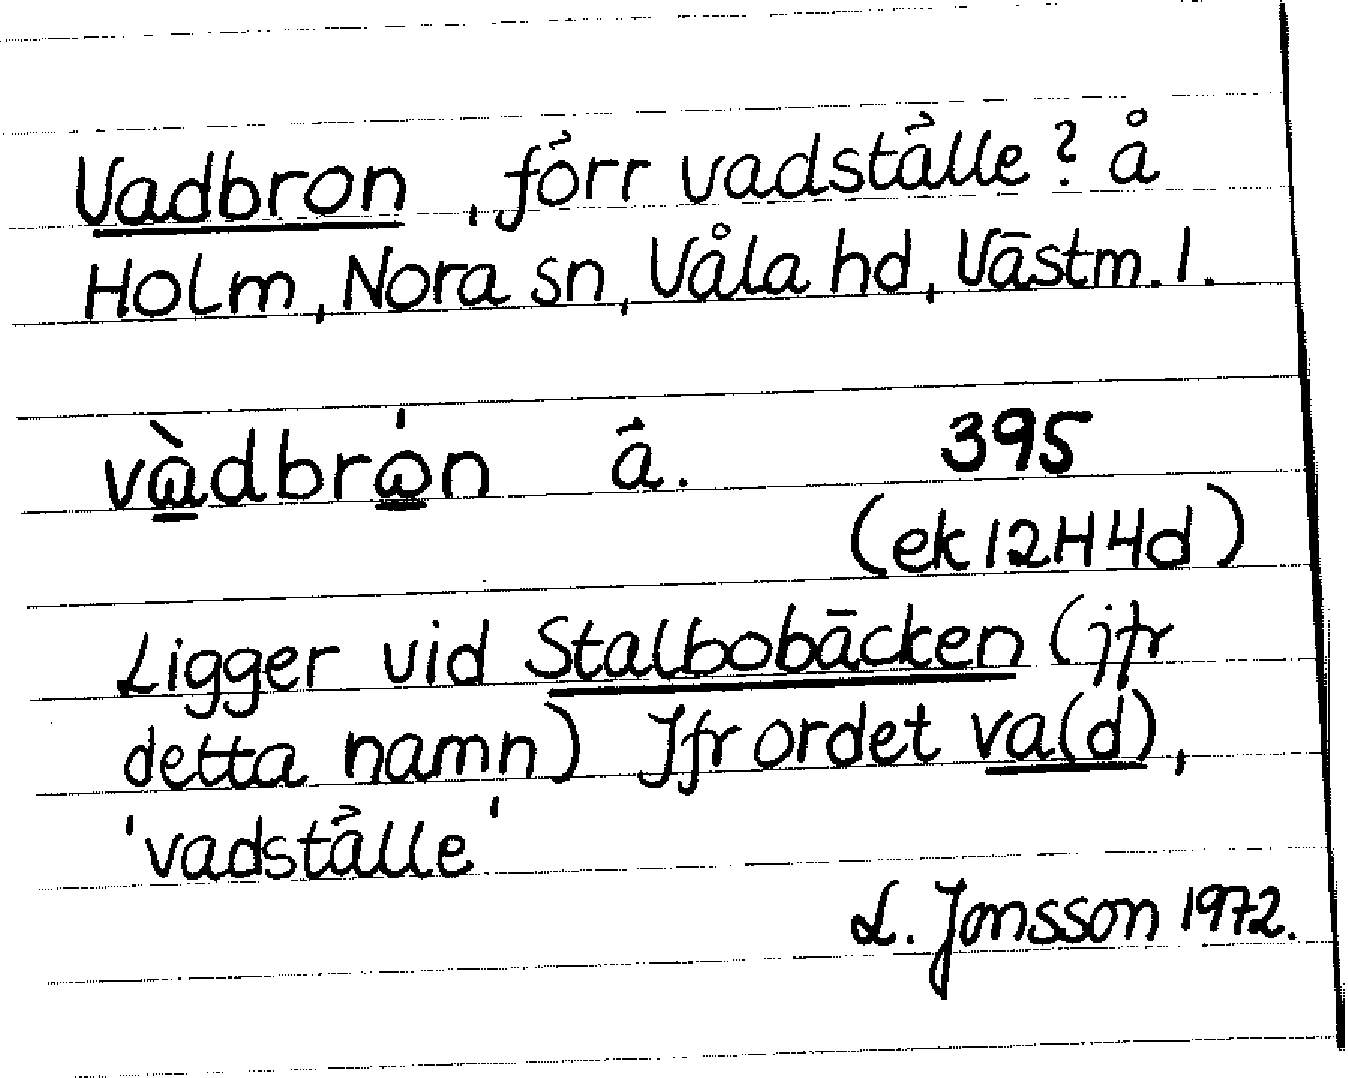 Vadbron, förr vadställe? å
Holm, Nora sn, Våla hd, Västm. l.
vàdbrón ä. 395
(ek 12H4d)
Ligger vid Stalbobäcken (jfr
detta namn) Jfr ordet va(d),
'vadställe'
L. Jonsson 1972.